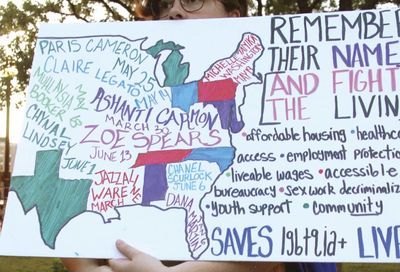 PARIS CAMERON
MAY 25
CLAIRE LEGATO
MAY 14
BOOKER
CHYNAL
LINDSEY
JUNE 1
ASHANTI CARMON
MARCH 30
ZOE SPEARS
JUNE 13
JAZZALINE
WARE
MARCH
MICHELLE
WASHINGTON
CHANEL
SCURLOCK
JUNE 6
DANA
REMEMBER
THEIR NAMES
AND FIGHT
THE LIVIN
•affordable housing •healthc
access •employment protection
•liveable wages •accessible
bureaucracy •Sex work decriminaliz
•Youth support •community
SAVES lgbtqia+ LIVE